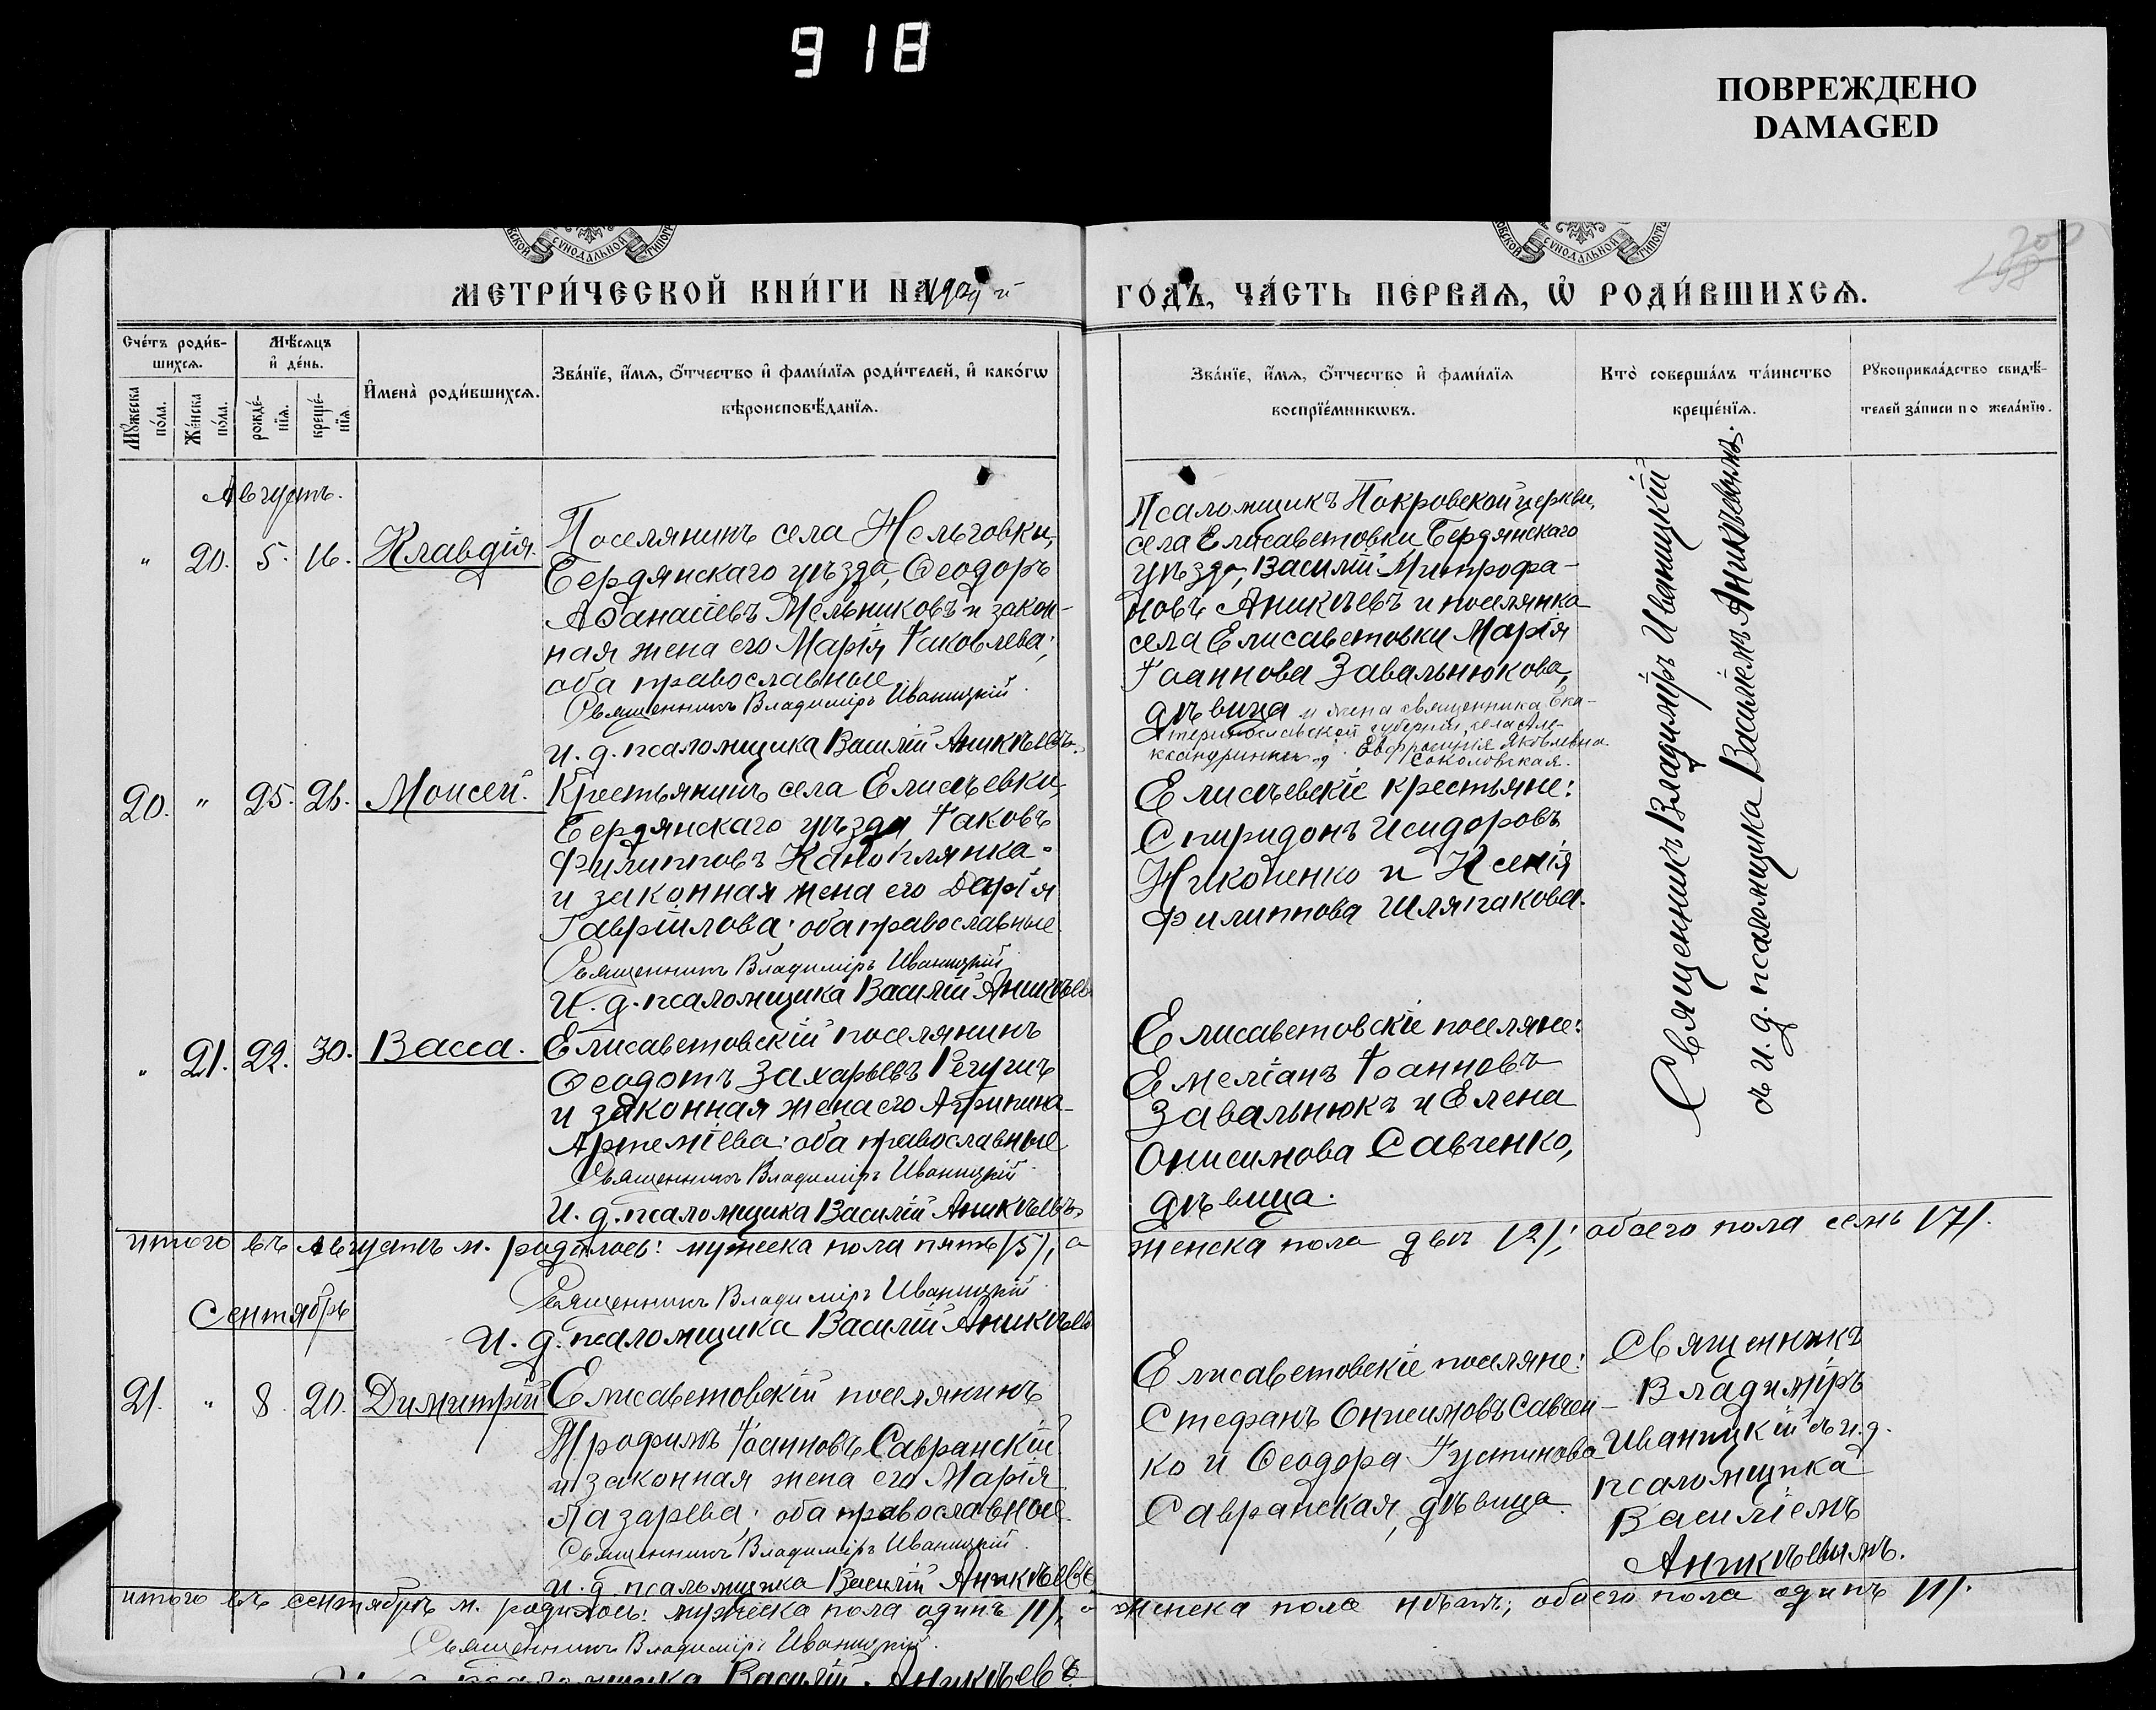 918
ПОВРЕЖДЕНО
DAMAGED
СУНОДАЛЬНОЙ
СУНОДАЛЬНОЙ
200
МЕТРИ́ЧЕСКОЙ КНИ́ГИ НА 1909 й
ГО́ДЪ, ЧА́СТЬ ПЕ́РВАѦ, Ѡ РОДИ́ВШИХСѦ.
Сче́тъ роди́в-
шихсѧ.
Мѣ́сѧцъ
и҆ де́нь.
Мꙋ́жеска по́ла.
Же́нска по́ла.
рожде́-нїѧ.
креще́-нїѧ.
И҆мена̀ роди́вшихсѧ.
Зва́нїе, и҆́мѧ, ѻ҆́тчество и҆ фами́лїѧ роди́телей, и҆ како́гѡ
вѣроисповѣ́данїѧ.
Зва́нїе, и҆́мѧ, ѻ҆́тчество и҆ фами́лїѧ
воспрїе́мникѡвъ.
Кто̀ соверша́лъ та́инство
креще́нїѧ.
Рꙋкоприкла́дство свидѣ́-
телей за́писи по жела́нїю.
Августъ.
" 20. 5. 16. Клавдія.
Поселянинъ села Нельговки,
Бердянскаго уѣзда, Ѳеодоръ
Аѳанасіевъ Мельниковъ и закон-
ная жена его Марія Іаковлева;
оба православные
Священникъ Владиміръ Иваницкій.
И. д. псаломщика Василій Аникѣевъ.
Псаломщикъ Покровской церкви,
села Елисаветовки Бердянскаго
уѣзда, Василій Митрофа-
новъ Аникѣевъ и поселянка
села Елисаветовки Марія
Іоаннова Завальнюкова,
дѣвица и жена священника Ека-
теринославской губерніи, села Але-
ксандринки, Евфросинія Яковлевна
Соколовская.
Священникъ Владиміръ Иваницкій
съ и. д. псаломщика Василіемъ Аникѣевымъ.
20. " 25. 26. Моисей.
Крестьянинъ села Елисѣевки,
Бердянскаго уѣзда, Іаковъ
Филипповъ Канопляnка
и законная жена его Дарія
Гавріилова; оба православные
Священникъ Владиміръ Иваницкій
И. д. псаломщика Василій Аникѣевъ
Елисѣевскіе крестьяне:
Спиридонъ Исидоровъ
Никоненко и Ксенія
Филиппова Шляпакова.
" 21. 22. 30. Васса.
Елисаветовскій поселянинъ
Ѳеодотъ Захарьевъ
и законная жена его Агрипина
Артеміева; оба православные
Священникъ Владиміръ Иваницкій
И. д. псаломщика Василій Аникѣевъ
Елисаветовскіе поселяне:
Емеліанъ Іоанновъ
Завальнюкъ и Елена
Онисимова Савченко,
дѣвица.
итого въ августѣ м. родилось: мужеска пола пять /5/, а
женска пола двѣ /2/; обоего пола семь /7/.
Священникъ Владиміръ Иваницкій
И. д. псаломщика Василій Аникѣевъ
Сентябрь
21. " 8. 20. Димитрій
Елисаветовскій поселянинъ
Трофимъ Іоанновъ Савранскій
и законная жена его Марія
Лазарева; оба православные.
Священникъ Владиміръ Иваницкій
И. д. псаломщика Василій Аникѣевъ
Елисаветовскіе поселяне:
Стефанъ Онисимовъ Савчен-
ко и Ѳеодора Іустинова
Савранская, дѣвица.
Священникъ
Владиміръ
Иваницкій съ и. д.
псаломщика
Василіемъ
Аникѣевымъ.
итого въ сентябрѣ м. родилось: мужеска пола одинъ /1/, а
женска пола нѣтъ; обоего пола одинъ /1/.
Священникъ Владиміръ Иваницкій.
И. д. псаломщика Василій Аникѣевъ